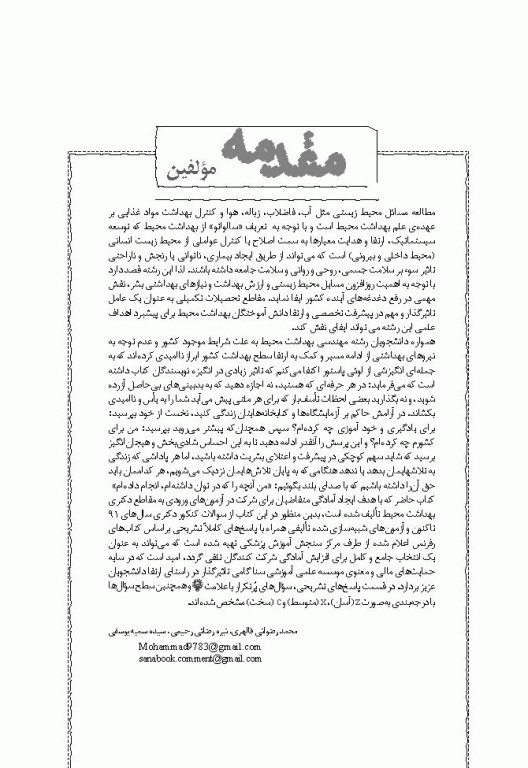 مقدمه
مؤلفین
مطالعه مسائل محیط زیستی مثل آب، فاضلاب، زباله، هوا و کنترل بهداشت مواد غذایی بر
عهده‌ی علم بهداشت محیط است و با توجه به تعریف «سالواتو» از بهداشت محیط که توسعه
سیستماتیک، ارتقا و هدایت معیارها به سمت اصلاح یا کنترل عواملی از محیط زیست انسانی
(محیط داخلی و بیرونی) است که می‌تواند از طریق ایجاد بیماری، ناتوانی یا رنجش و ناراحتی
تاثیر سوء بر سلامت جسمی، روحی و روانی و سلامت جامعه داشته باشند. لذا این رشته قصد دارد
با توجه به اهمیت روزافزون مسایل محیط زیستی و ارزش بهداشت و نیازهای بهداشتی بشر، نقش
مهمی در رفع دغدغه‌های آینده کشور ایفا نماید. مقاطع تحصیلات تکمیلی به عنوان یک عامل
تاثیرگذار و مهم در پیشرفت تخصصی و ارتقا دانش آموختگان بهداشت محیط برای پیشبرد اهداف
علمی این رشته می تواند ایفای نقش کند.
همواره دانشجویان رشته مهندسی بهداشت محیط به علت شرایط موجود کشور و عدم توجه به
نیروهای بهداشتی از ادامه مسیر و کمک به ارتقا سطح بهداشت کشور ابراز ناامیدی کرده‌اند که به
جمله‌ای انگیزشی از لوئی پاستور اکتفا می‌کنم که تاثیر زیادی در انگیزه نویسندگان کتاب داشته
است که می‌فرماید: در هر حرفه‌ای که هستید، نه اجازه دهید که به بدبینی‌های بی‌حاصل آزرده
شوید، و نه بگذارید بعضی لحظات تأسف‌بار که برای هر ملتی پیش می‌آید شما را به یأس و ناامیدی
بکشاند. در آرامش حاکم بر آزمایشگاه‌ها و کتابخانه‌هایتان زندگی کنید. نخست از خود بپرسید:
برای یادگیری و خود آموزی چه کرده‌ام؟ سپس همچنان‌که پیشتر می‌روید بپرسید: من برای
کشورم چه کرده‌ام؟ و این پرسش را آنقدر ادامه دهید تا به این احساس شادی‌بخش و هیجان‌انگیز
برسید که شاید سهم کوچکی در پیشرفت و اعتلای بشریت داشته باشید. اما هر پاداشی که زندگی
به تلاشهایمان بدهد یا ندهد هنگامی که به پایان تلاش‌هایمان نزدیک می‌شویم، هر کداممان باید
حق آن‌را داشته باشیم که با صدای بلند بگوئیم: «من آنچه را که در توان داشته‌ام، انجام داده‌ام»
کتاب حاضر که با هدف ایجاد آمادگی متقاضیان برای شرکت در آزمون‌های ورودی به مقاطع دکتری
بهداشت محیط تألیف شده است. بدین منظور در این کتاب از سوالات کنکور دکتری سال‌های ۹۱
تاکنون و آزمون‌های شبیه‌سازی شده تألیفی همراه با پاسخ‌های کاملاً تشریحی بر اساس کتاب‌های
رفرنس اعلام شده از طرف مرکز سنجش آموزش پزشکی تهیه شده است که می‌تواند به عنوان
یک انتخاب جامع و کامل برای افزایش آمادگی شرکت کنندگان تلقی گردد. امید است که در سایه
حمایت‌های مالی و معنوی موسسه علمی آموزشی سنا گامی تاثیرگذار در راستای ارتقا دانشجویان
عزیز بردارد. در قسمت پاسخ‌های تشریحی، سؤال‌های پُرتکرار با علامت و همچنین سطح سؤال‌ها
با درجه‌بندی به‌صورت Z (آسان)، X (متوسط) و C (سخت) مشخص شده‌اند.
محمد رضوانی قالهری، نیره رضائی رحیمی، سیده سمیه یوسفی
Mohammad9783@gmail.com
sanabook.comment@gmail.com